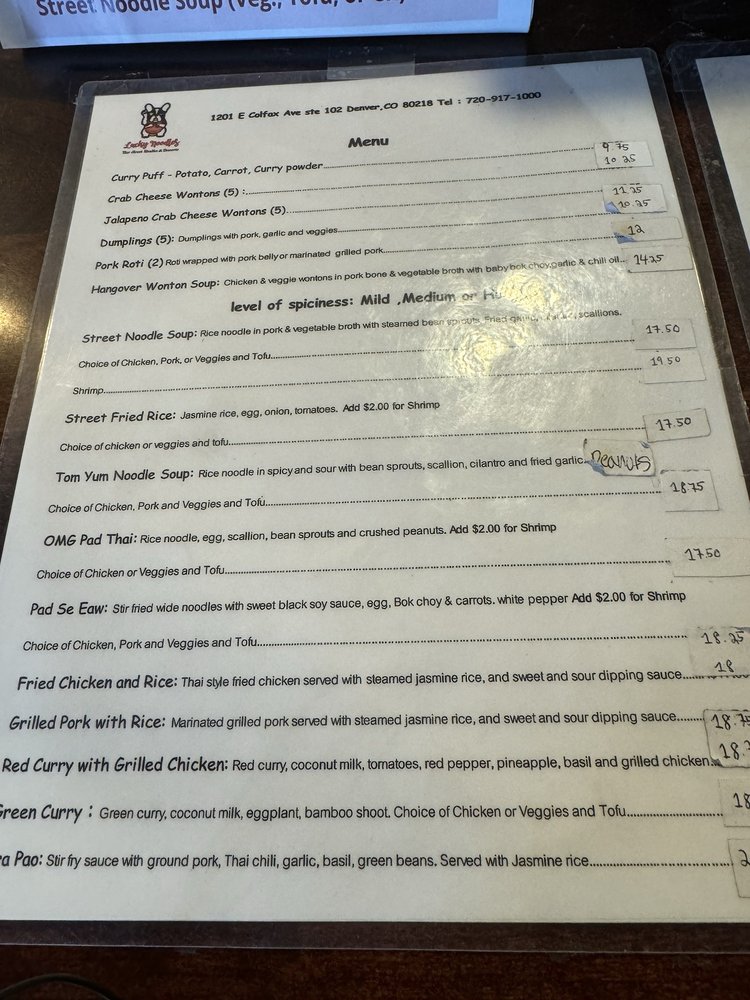 Street Noodle Soup (Veg., Tofu, or
1201 E Colfax Ave ste 102 Denver,CO 80218 Tel : 720-917-1000
Lucky Noodles
Menu
Curry Puff - Potato, Carrot, Curry powder 9.75
Crab Cheese Wontons (5) : 10.25
Jalapeno Crab Cheese Wontons (5) 11.25
Dumplings (5): Dumplings with pork, garlic and veggies 10.25
Pork Roti (2) Roti wrapped with pork belly or marinated grilled pork 12
Hangover Wonton Soup: Chicken & veggie wontons in pork bone & vegetable broth with baby bok choy,garlic & chili oil... 14.25
level of spiciness: Mild ,Medium or
Street Noodle Soup: Rice noodle in pork & vegetable broth with steamed bean sprouts, Fried scallions.
Choice of Chicken, Pork, or Veggies and Tofu 17.50
Shrimp 19.50
Street Fried Rice: Jasmine rice, egg, onion, tomatoes. Add $2.00 for Shrimp
Choice of chicken or veggies and tofu 17.50
Tom Yum Noodle Soup: Rice noodle in spicy and sour with bean sprouts, scallion, cilantro and fried garlic. Peanuts
Choice of Chicken, Pork and Veggies and Tofu 18.75
OMG Pad Thai: Rice noodle, egg, scallion, bean sprouts and crushed peanuts. Add $2.00 for Shrimp
Choice of Chicken or Veggies and Tofu 17.50
Pad Se Eaw: Stir fried wide noodles with sweet black soy sauce, egg, Bok choy & carrots. white pepper Add $2.00 for Shrimp
Choice of Chicken, Pork and Veggies and Tofu 18.25
Fried Chicken and Rice: Thai style fried chicken served with steamed jasmine rice, and sweet and sour dipping sauce 18
Grilled Pork with Rice: Marinated grilled pork served with steamed jasmine rice, and sweet and sour dipping sauce 18.75
Red Curry with Grilled Chicken: Red curry, coconut milk, tomatoes, red pepper, pineapple, basil and grilled chicken 18.
Green Curry : Green curry, coconut milk, eggplant, bamboo shoot. Choice of Chicken or Veggies and Tofu 18
a Pao: Stir fry sauce with ground pork, Thai chili, garlic, basil, green beans. Served with Jasmine rice 2